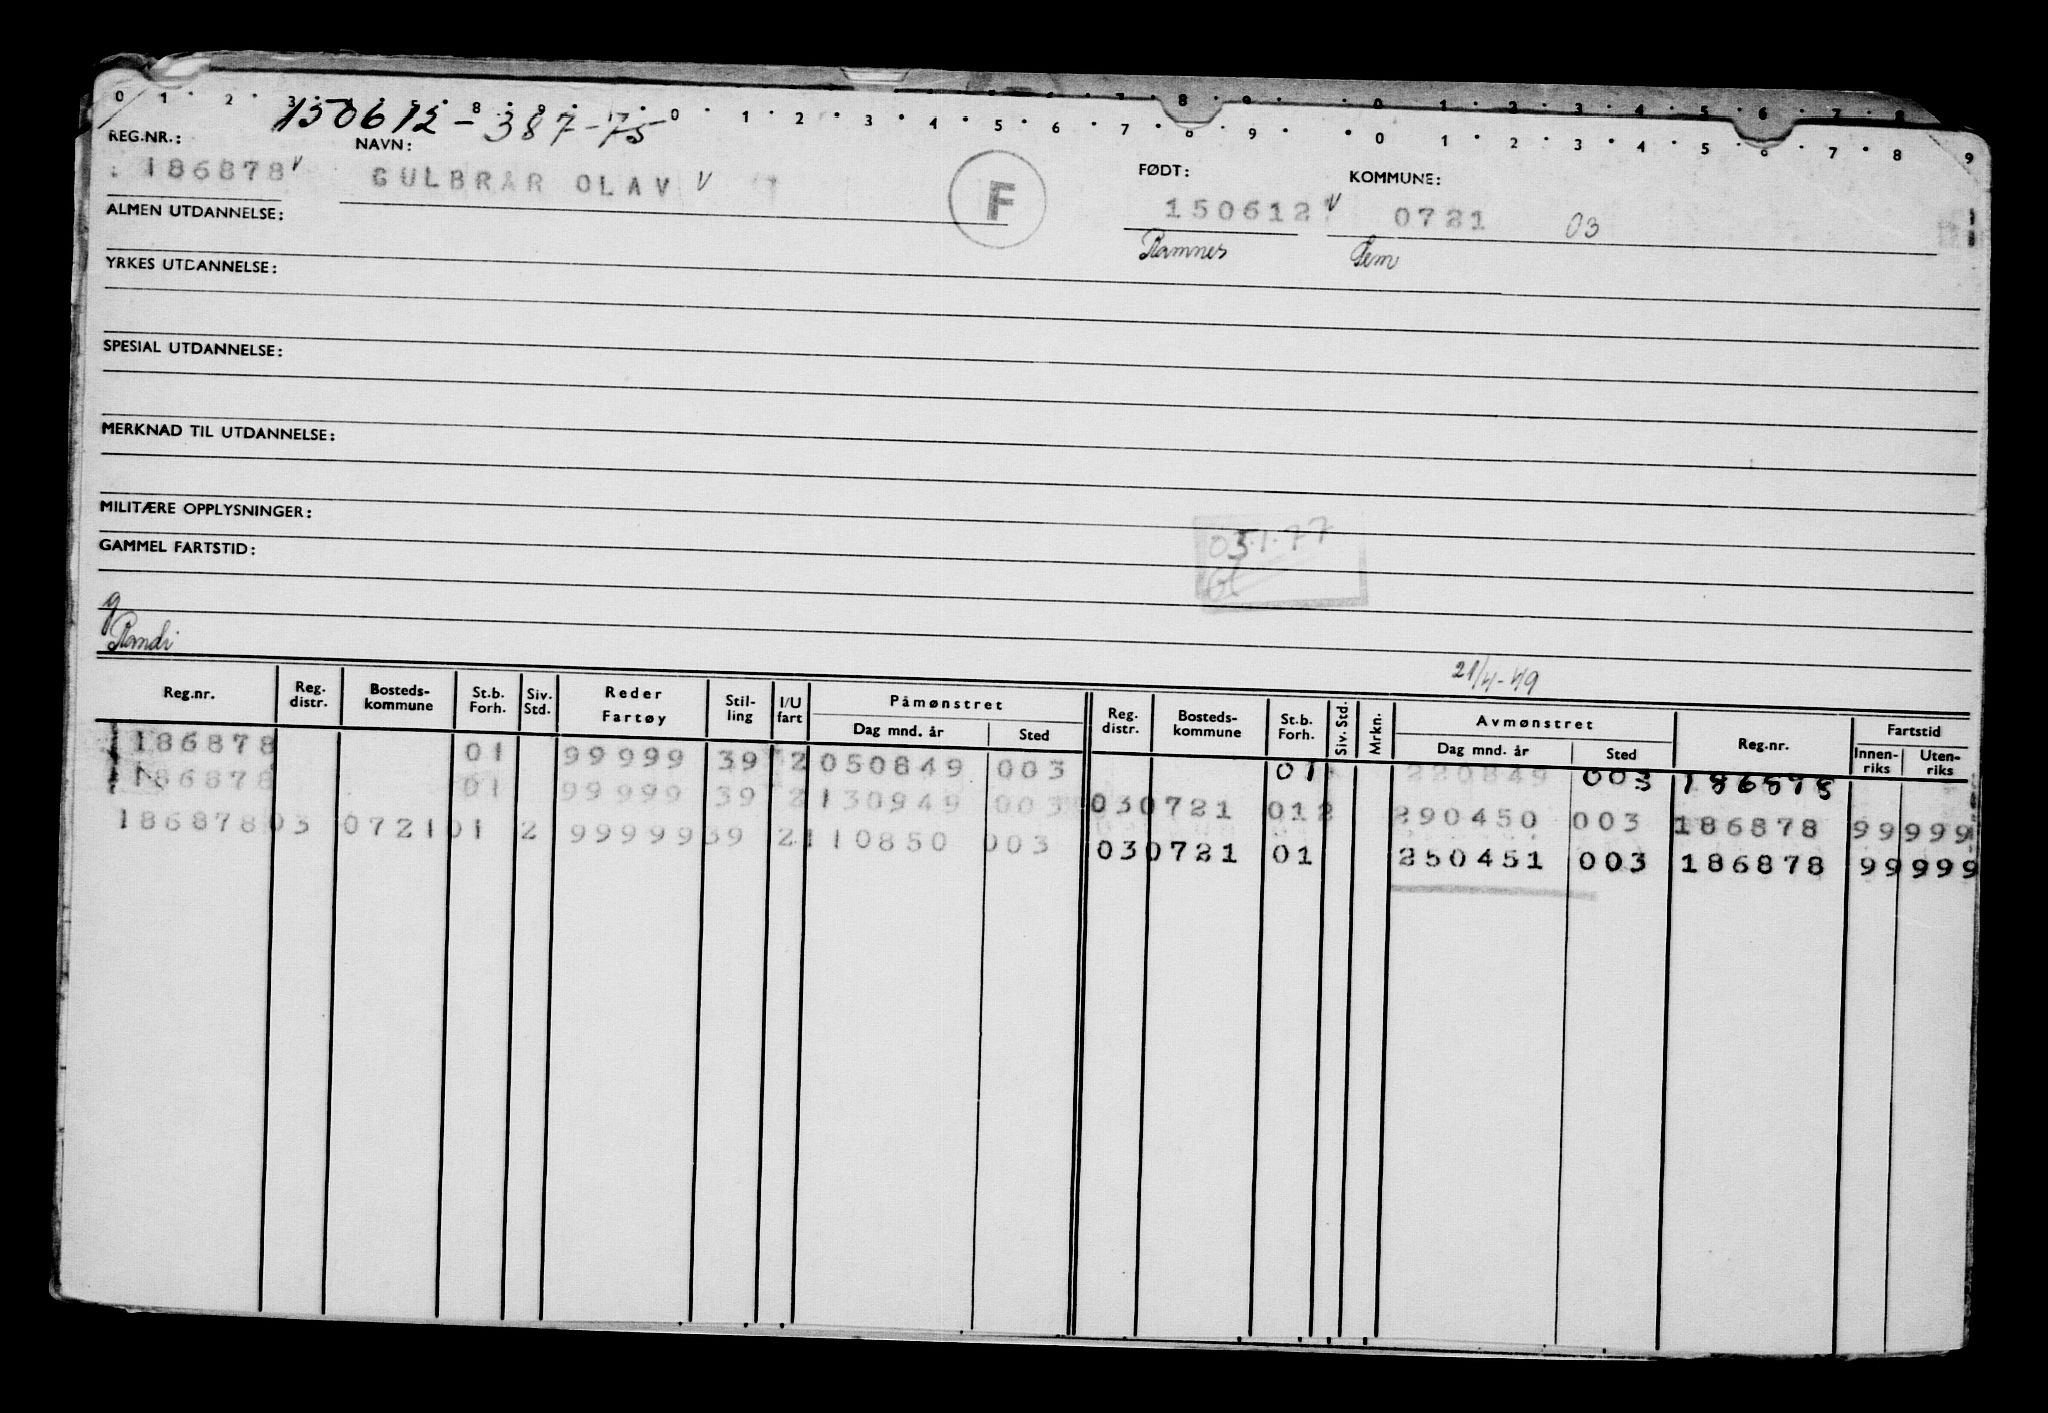 0 1 2 3 8 9 0 1 2 3 4 5 6 7 8 9 0 1 2 3 4 5 6 7 8 9
150612 - 387-75
REG.NR.: NAVN: FØDT: KOMMUNE:
186878 V GULBRAR OLAV V F 150612 V 0721 03
ALMEN UTDANNELSE: Ramnes Sem
YRKES UTDANNELSE:
SPESIAL UTDANNELSE:
MERKNAD TIL UTDANNELSE:
MILITÆRE OPPLYSNINGER:
GAMMEL FARTSTID:
g
Randi
21/4-49
Reg.nr. Reg. distr. Bosteds-kommune St.b. Forh. Siv. Std. Reder Fartøy Stil-ling I/U fart Påmønstret Dag mnd. år Sted Reg. distr. Bosteds-kommune St.b. Forh. Siv. Std. Mrkn. Avmønstret Dag mnd. år Sted Reg.nr. Fartstid Innen-riks Uten-riks
186878 01 99999 39 2 050849 003 01 220849 003 186878
186878 01 99999 39 2 130949 003 03 0721 01 2 290450 003 186878 99 999
186878 03 0721 01 2 99999 39 2 110850 003 03 0721 01 250451 003 186878 99 999